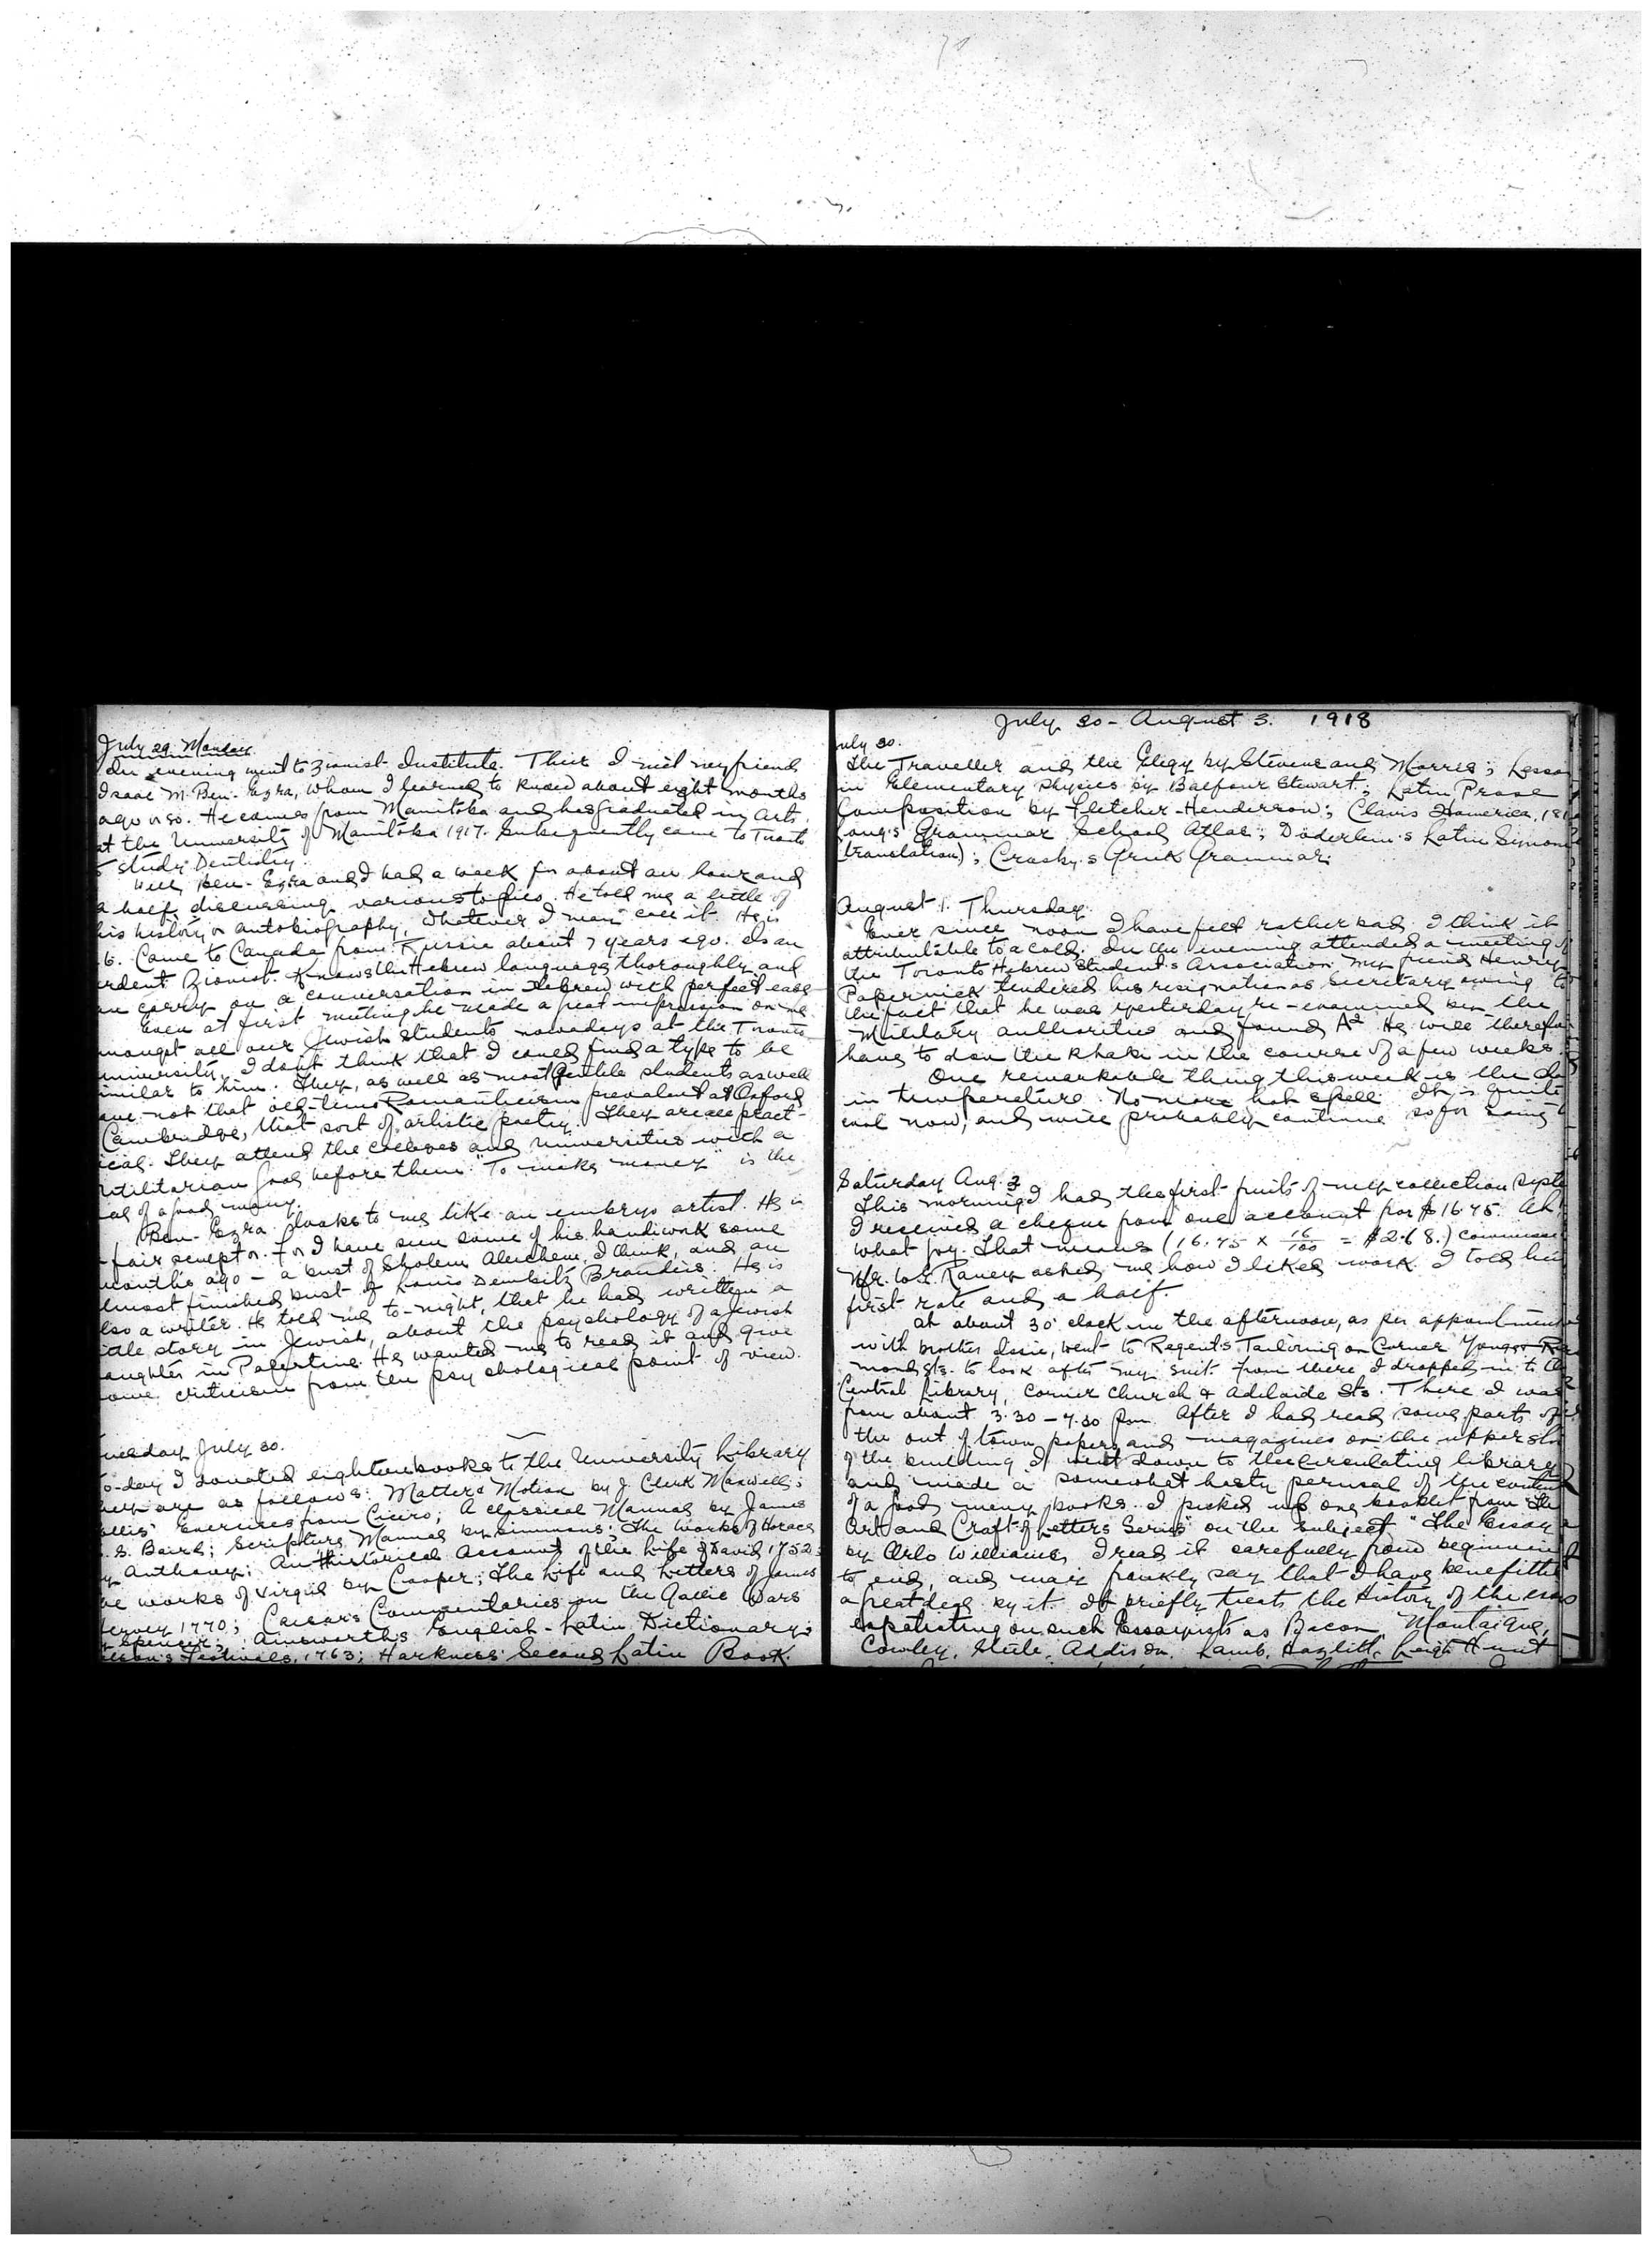 July 29. Monday.
In evening went to Zionist Institute. There I met my friend
Isaac M. Ben-Ezra, whom I learned to know about eight months
ago or so. He comes from Manitoba and has graduated in Arts
at the University of Manitoba 1917. Subsequently came to Toronto
study Dentistry.
Well, Ben-Ezra and I had a walk for about an hour and
a half, discussing various topics. He told me a little of
his history or autobiography, whatever I may call it. He is
Came to Canada from Russia about 7 years ago. Is an
ardent Zionist. Knows the Hebrew language thoroughly and
can carry on a conversation in Hebrew with perfect ease
Even at first meeting he made a great impression on me.
mongst all our Jewish students nowadays at the Toronto
university, I don't think that I could find a type to be
imilar to him. They, as well as most Gentile students as well
ave not that old-time Romanticism prevalent at Oxford
Cambridge, that sort of artistic poetry. They are all pract-
ical. They attend the colleges and universities with a
utilitarian goal before them. "To make money" is the
oal of a good many.
Ben-Ezra looks to me like an embryo artist. He is
fair sculptor. For I have seen some of his handiwork some
months ago - a bust of Sholem Aleichem, I think, and an
lmost finished bust of Louis Dembitz Brandeis. He is
lso a writer. He told me to-night, that he had written a
ittle story in Jewish, about the psychology of a Jewish
aughter in Palestine. He wanted me to read it and give
ome criticism from the psychological point of view.
uesday July 30.
o-day I donated eighteen books to the University Library
hey are as follows: Matter & Motion by J. Clerk Maxwell;
Exercises from Cicero; A classical Manual by James
S. Baird; Scripture Manual by Simmons; The Works of Horace
y Anthony; An Historical Account of the Life of David 1752;
he works of Virgil by Cooper; The Life and Letters of James
Hervey 1770; Caesar's Commentaries on the Gallic Wars
y Spencer; Ainsworth's English-Latin Dictionary;
Festivals, 1763; Harkness' Second Latin Book.
July 30 - August 3. 1918
uly 30.
The Traveller and the Elegy by Stevens and Morris; Lesson
in Elementary Physics by Balfour Stewart; Latin Prose
Composition by Fletcher-Henderson; Clavis Homerica, 181
Grammar School Atlas; Doderlein's Latin Synon
(translation); Crosby's Greek Grammar.
August 1. Thursday.
Ever since noon I have felt rather bad. I think it
attributable to a cold. In the evening attended a meeting of
the Toronto Hebrew Student's Association. My friend Henry
Papernick tendered his resignation as Secretary owing to
the fact that he was yesterday re-examined by the
Military authorities and found A2. He will therefor
have to don the khaki in the course of a few weeks.
One remarkable thing this week is the
in temperature. No more hot spell. It is quite
cool now, and will probably continue so for some
Saturday Aug. 3
This morning I had the first fruits of my collection syste
I received a cheque from one account for $16.75. Ah!
what joy. That means (16.75 x 16/100 = $2.68.) commiss
Mr. W. E. Raney asked me how I liked work. I told him
first rate and a half.
At about 3 o'clock in the afternoon, as per appointment
with brother Isaie, went to Regent's Tailoring on Corner Yonge &
mond Sts. to look after my suit. From there I dropped in to the
Central Library, Corner Church & Adelaide Sts. There I was
from about 3.30 - 7.30 P.m. After I had read some parts of
the out of town papers and magazines on the upper
of the building I went down to the circulating library
and made a somewhat hasty perusal of the content
of a good many books. I picked up one booklet from "The
Art and Craft of Letters Series" on the subject "The Essay
by Orlo Williams. I read it carefully from beginning
to end, and may frankly say that I have benefitted
a great deal by it. It briefly treats the History of the essay
expatiating on such Essayists as Bacon, Montaigne,
Cowley, Steele, Addison, Lamb, Hazlitt, Leigh Hunt